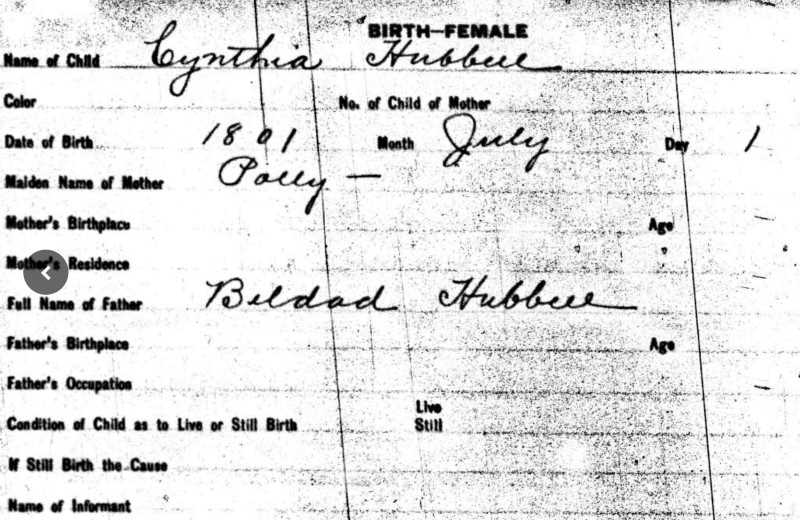 BIRTH—FEMALE
Name of Child Cynthia Hubbell
Color No. of Child of Mother
Date of Birth 1801 Month July Day 1
Maiden Name of Mother Polly —
Mother's Birthplace Age
Mother's Residence
Full Name of Father Beldad Hubbell
Father's Birthplace Age
Father's Occupation
Condition of Child as to Live or Still Birth Live
Still
If Still Birth the Cause
Name of Informant